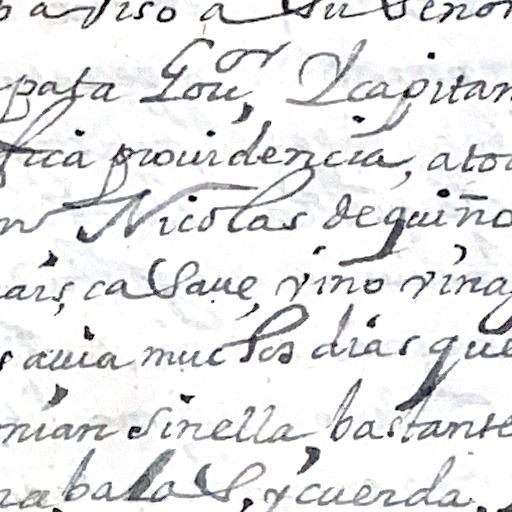 aviso a Su Señor
pata Gour, Y capitan
fica prouidencia, a to
Nicolas de quiño
ais, ca Saue, vino vina
s auia muchos dias que
nian sinella, bastante
ra, balas, y cuerda,